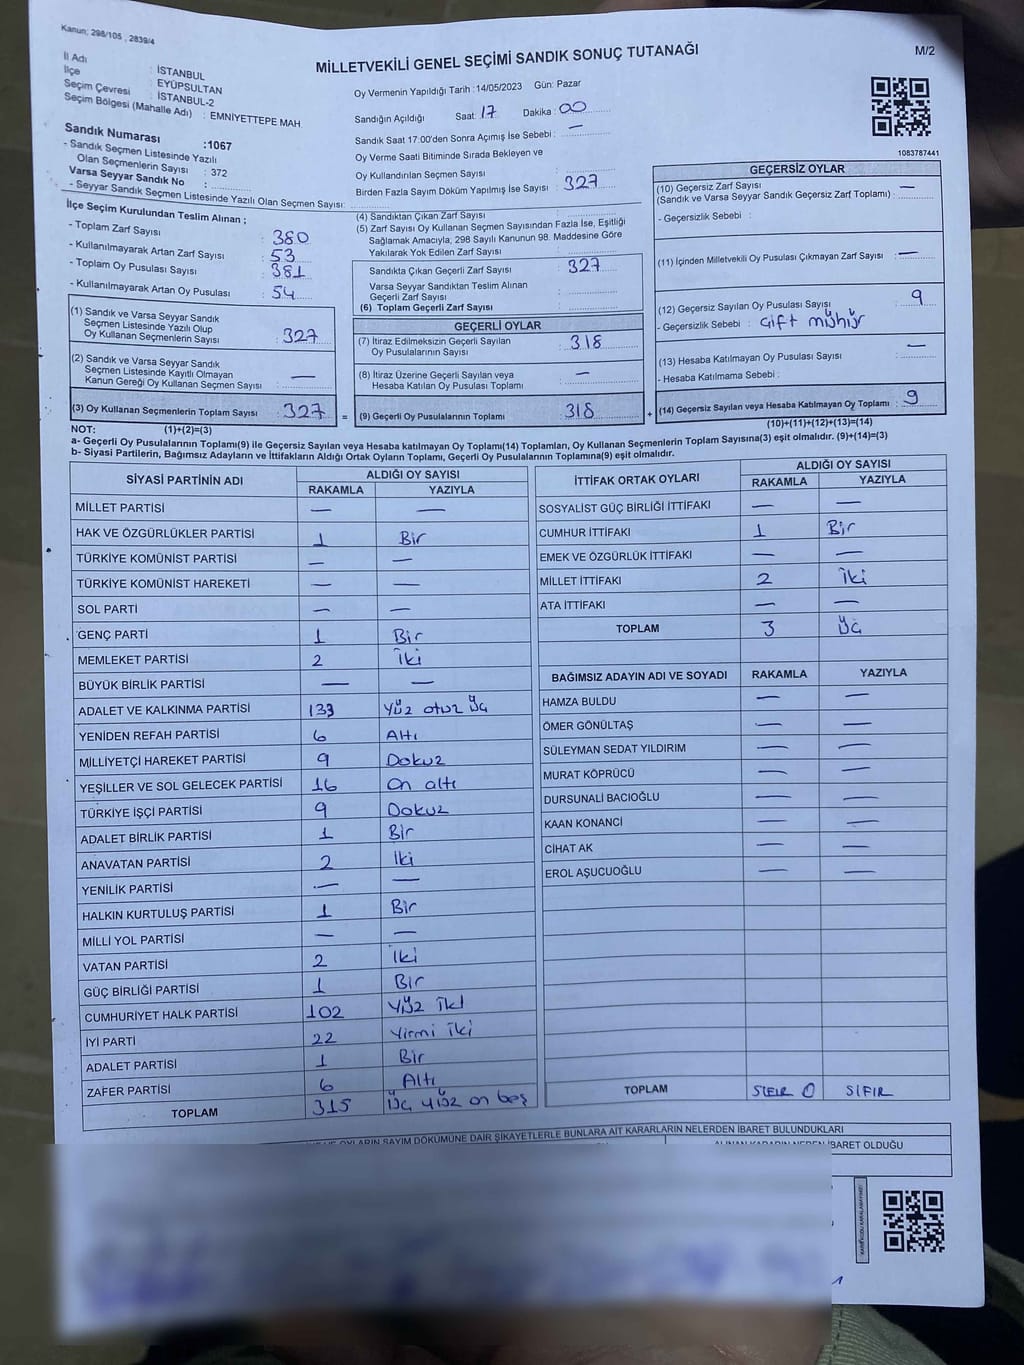 Kanun; 298/105 , 2839/4
İl Adı : İSTANBUL
İlçe : EYÜPSULTAN
Seçim Çevresi : İSTANBUL-2
Seçim Bölgesi (Mahalle Adı) : EMNİYETTEPE MAH
Sandık Numarası :1067
- Sandık Seçmen Listesinde Yazılı
Olan Seçmenlerin Sayısı : 372
Varsa Seyyar Sandık No :
- Seyyar Sandık Seçmen Listesinde Yazılı Olan Seçmen Sayısı:
MİLLETVEKİLİ GENEL SEÇİMİ SANDIK SONUÇ TUTANAĞI
M/2
Oy Vermenin Yapıldığı Tarih : 14/05/2023 Gün: Pazar
Sandığın Açıldığı Saat: 17 Dakika : 00
Sandık Saat 17:00'den Sonra Açımış İse Sebebi : —
Oy Verme Saati Bitiminde Sırada Bekleyen ve
Oy Kullandırılan Seçmen Sayısı
Birden Fazla Sayım Döküm Yapılmış İse Sayısı : 327
1083787441
İlçe Seçim Kurulundan Teslim Alınan ;
- Toplam Zarf Sayısı : 380
- Kullanılmayarak Artan Zarf Sayısı : 53
- Toplam Oy Pusulası Sayısı : 381
- Kullanılmayarak Artan Oy Pusulası : 54
(1) Sandık ve Varsa Seyyar Sandık
Seçmen Listesinde Yazılı Olup
Oy Kullanan Seçmenlerin Sayısı : 327
(2) Sandık ve Varsa Seyyar Sandık
Seçmen Listesinde Kayıtlı Olmayan
Kanun Gereği Oy Kullanan Seçmen Sayısı : —
(3) Oy Kullanan Seçmenlerin Toplam Sayısı : 327 =
(4) Sandıktan Çıkan Zarf Sayısı :
(5) Zarf Sayısı Oy Kullanan Seçmen Sayısından Fazla İse, Eşitliği
Sağlamak Amacıyla; 298 Sayılı Kanunun 98. Maddesine Göre
Yakılarak Yok Edilen Zarf Sayısı :
Sandıkta Çıkan Geçerli Zarf Sayısı : 327
Varsa Seyyar Sandıktan Teslim Alınan
Geçerli Zarf Sayısı :
(6) Toplam Geçerli Zarf Sayısı :
GEÇERLİ OYLAR
(7) İtiraz Edilmeksizin Geçerli Sayılan
Oy Pusulalarının Sayısı : 318
(8) İtiraz Üzerine Geçerli Sayılan veya
Hesaba Katılan Oy Pusulası Toplamı : —
(9) Geçerli Oy Pusulalarının Toplamı : 318 +
GEÇERSİZ OYLAR
(10) Geçersiz Zarf Sayısı
(Sandık ve Varsa Seyyar Sandık Geçersiz Zarf Toplamı) : —
- Geçersizlik Sebebi :
(11) İçinden Milletvekili Oy Pusulası Çıkmayan Zarf Sayısı : —
(12) Geçersiz Sayılan Oy Pusulası Sayısı : 9
- Geçersizlik Sebebi : Çift mühür
(13) Hesaba Katılmayan Oy Pusulası Sayısı : —
- Hesaba Katılmama Sebebi :
(14) Geçersiz Sayılan veya Hesaba Katılmayan Oy Toplamı : 9
NOT: (1)+(2)=(3) (10)+(11)+(12)+(13)=(14)
a- Geçerli Oy Pusulalarının Toplamı(9) ile Geçersiz Sayılan veya Hesaba katılmayan Oy Toplamı(14) Toplamları, Oy Kullanan Seçmenlerin Toplam Sayısına(3) eşit olmalıdır. (9)+(14)=(3)
b- Siyasi Partilerin, Bağımsız Adayların ve İttifakların Aldığı Ortak Oyların Toplamı, Geçerli Oy Pusulalarının Toplamına(9) eşit olmalıdır.
SİYASİ PARTİNİN ADI ALDIĞI OY SAYISI
RAKAMLA YAZIYLA
MİLLET PARTİSİ — —
HAK VE ÖZGÜRLÜKLER PARTİSİ 1 Bir
TÜRKİYE KOMÜNİST PARTİSİ — —
TÜRKİYE KOMÜNİST HAREKETİ — —
SOL PARTİ — —
GENÇ PARTİ 1 Bir
MEMLEKET PARTİSİ 2 İki
BÜYÜK BİRLİK PARTİSİ — —
ADALET VE KALKINMA PARTİSİ 133 Yüz otuz üç
YENİDEN REFAH PARTİSİ 6 Altı
MİLLİYETÇİ HAREKET PARTİSİ 9 Dokuz
YEŞİLLER VE SOL GELECEK PARTİSİ 16 On altı
TÜRKİYE İŞÇİ PARTİSİ 9 Dokuz
ADALET BİRLİK PARTİSİ 1 Bir
ANAVATAN PARTİSİ 2 İki
YENİLİK PARTİSİ — —
HALKIN KURTULUŞ PARTİSİ 1 Bir
MİLLİ YOL PARTİSİ — —
VATAN PARTİSİ 2 İki
GÜÇ BİRLİĞİ PARTİSİ 1 Bir
CUMHURİYET HALK PARTİSİ 102 Yüz iki
İYİ PARTİ 22 Yirmi iki
ADALET PARTİSİ 1 Bir
ZAFER PARTİSİ 6 Altı
TOPLAM 315 Üç yüz on beş
İTTİFAK ORTAK OYLARI ALDIĞI OY SAYISI
RAKAMLA YAZIYLA
SOSYALİST GÜÇ BİRLİĞİ İTTİFAKI — —
CUMHUR İTTİFAKI 1 Bir
EMEK VE ÖZGÜRLÜK İTTİFAKI — —
MİLLET İTTİFAKI 2 İki
ATA İTTİFAKI — —
TOPLAM 3 Üç
BAĞIMSIZ ADAYIN ADI VE SOYADI RAKAMLA YAZIYLA
HAMZA BULDU — —
ÖMER GÖNÜLTAŞ — —
SÜLEYMAN SEDAT YILDIRIM — —
MURAT KÖPRÜCÜ — —
DURSUNALİ BACIOĞLU — —
KAAN KONANCİ — —
CİHAT AK — —
EROL AŞUCUOĞLU — —
TOPLAM SIFIR 0 SIFIR
OYLARIN SAYIM DÖKÜMÜNE DAİR ŞİKAYETLERLE BUNLARA AİT KARARLARIN NELERDEN İBARET BULUNDUKLARI
ALINAN KARARIN NEDEN İBARET OLDUĞU